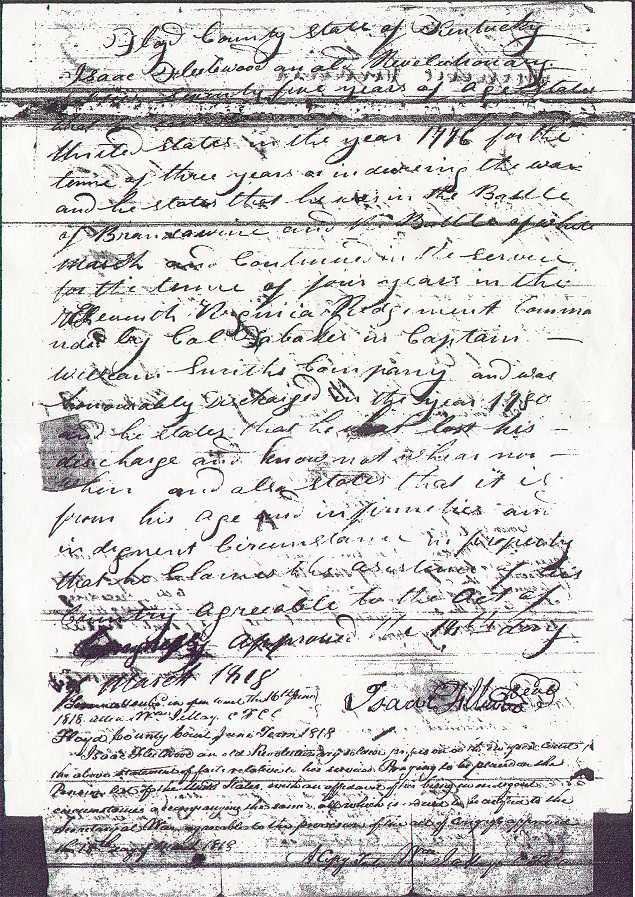 Floyd County State of Kentucky
Isaac Fleetwood an old Revolutionary
five years of age States
that
United states in the year 1776 for the
terme of three years or indewering the war
and he states that he was in the Battle
of Brandawine and the Battle of white
march and Continued in the Service
for the terme of four years in the
Eleventh Virginia Redgement Comma
nded by Col in Captain —
William Smiths Company and was
honourably discharged in the year 1780
and he States that he lost his —
discharge and know not whear nor —
when and also states that it is
from his age and infirmities and
indigment Circumstance in property
that he Claimes the asistance of his
Country agreeable to the act of
Congress approved the 18th day
March 1818
in open court the 16th June
Isaac Seal
1818 attest Wm C F C C
Floyd County Court June Term 1818
Isaac Fleetwood an old Revolutionary soldier in open Court
the above statement of facts relative to his services Praying to be placed on the
Pension list of the United States, with an affidavit of his being in indigent
circumstances accompanying the same, all which is to be certified to the
Secretary of War agreeable to the provision of the act of Congress approved
the 18th day of March 1818
A Copy Wm